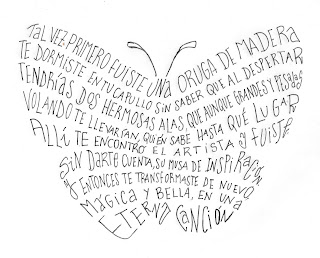 TAL VEZ PRIMERO FUISTE UNA ORUGA DE MADERA
TE DORMISTE EN TU CAPULLO SIN SABER QUE AL DESPERTAR
TENDRÍAS DOS HERMOSAS ALAS, QUE AUNQUE GRANDES Y PESADAS
VOLANDO TE LLEVARÍAN, QUIÉN SABE HASTA QUÉ LUGAR
ALLÍ TE ENCONTRÓ EL ARTISTA Y FUISTE,
SIN DARTE CUENTA, SU MUSA DE INSPIRACIÓN,
Y ENTONCES TE TRANSFORMASTE DE NUEVO,
MÁGICA Y BELLA, EN UNA
ETERNA CANCIÓN